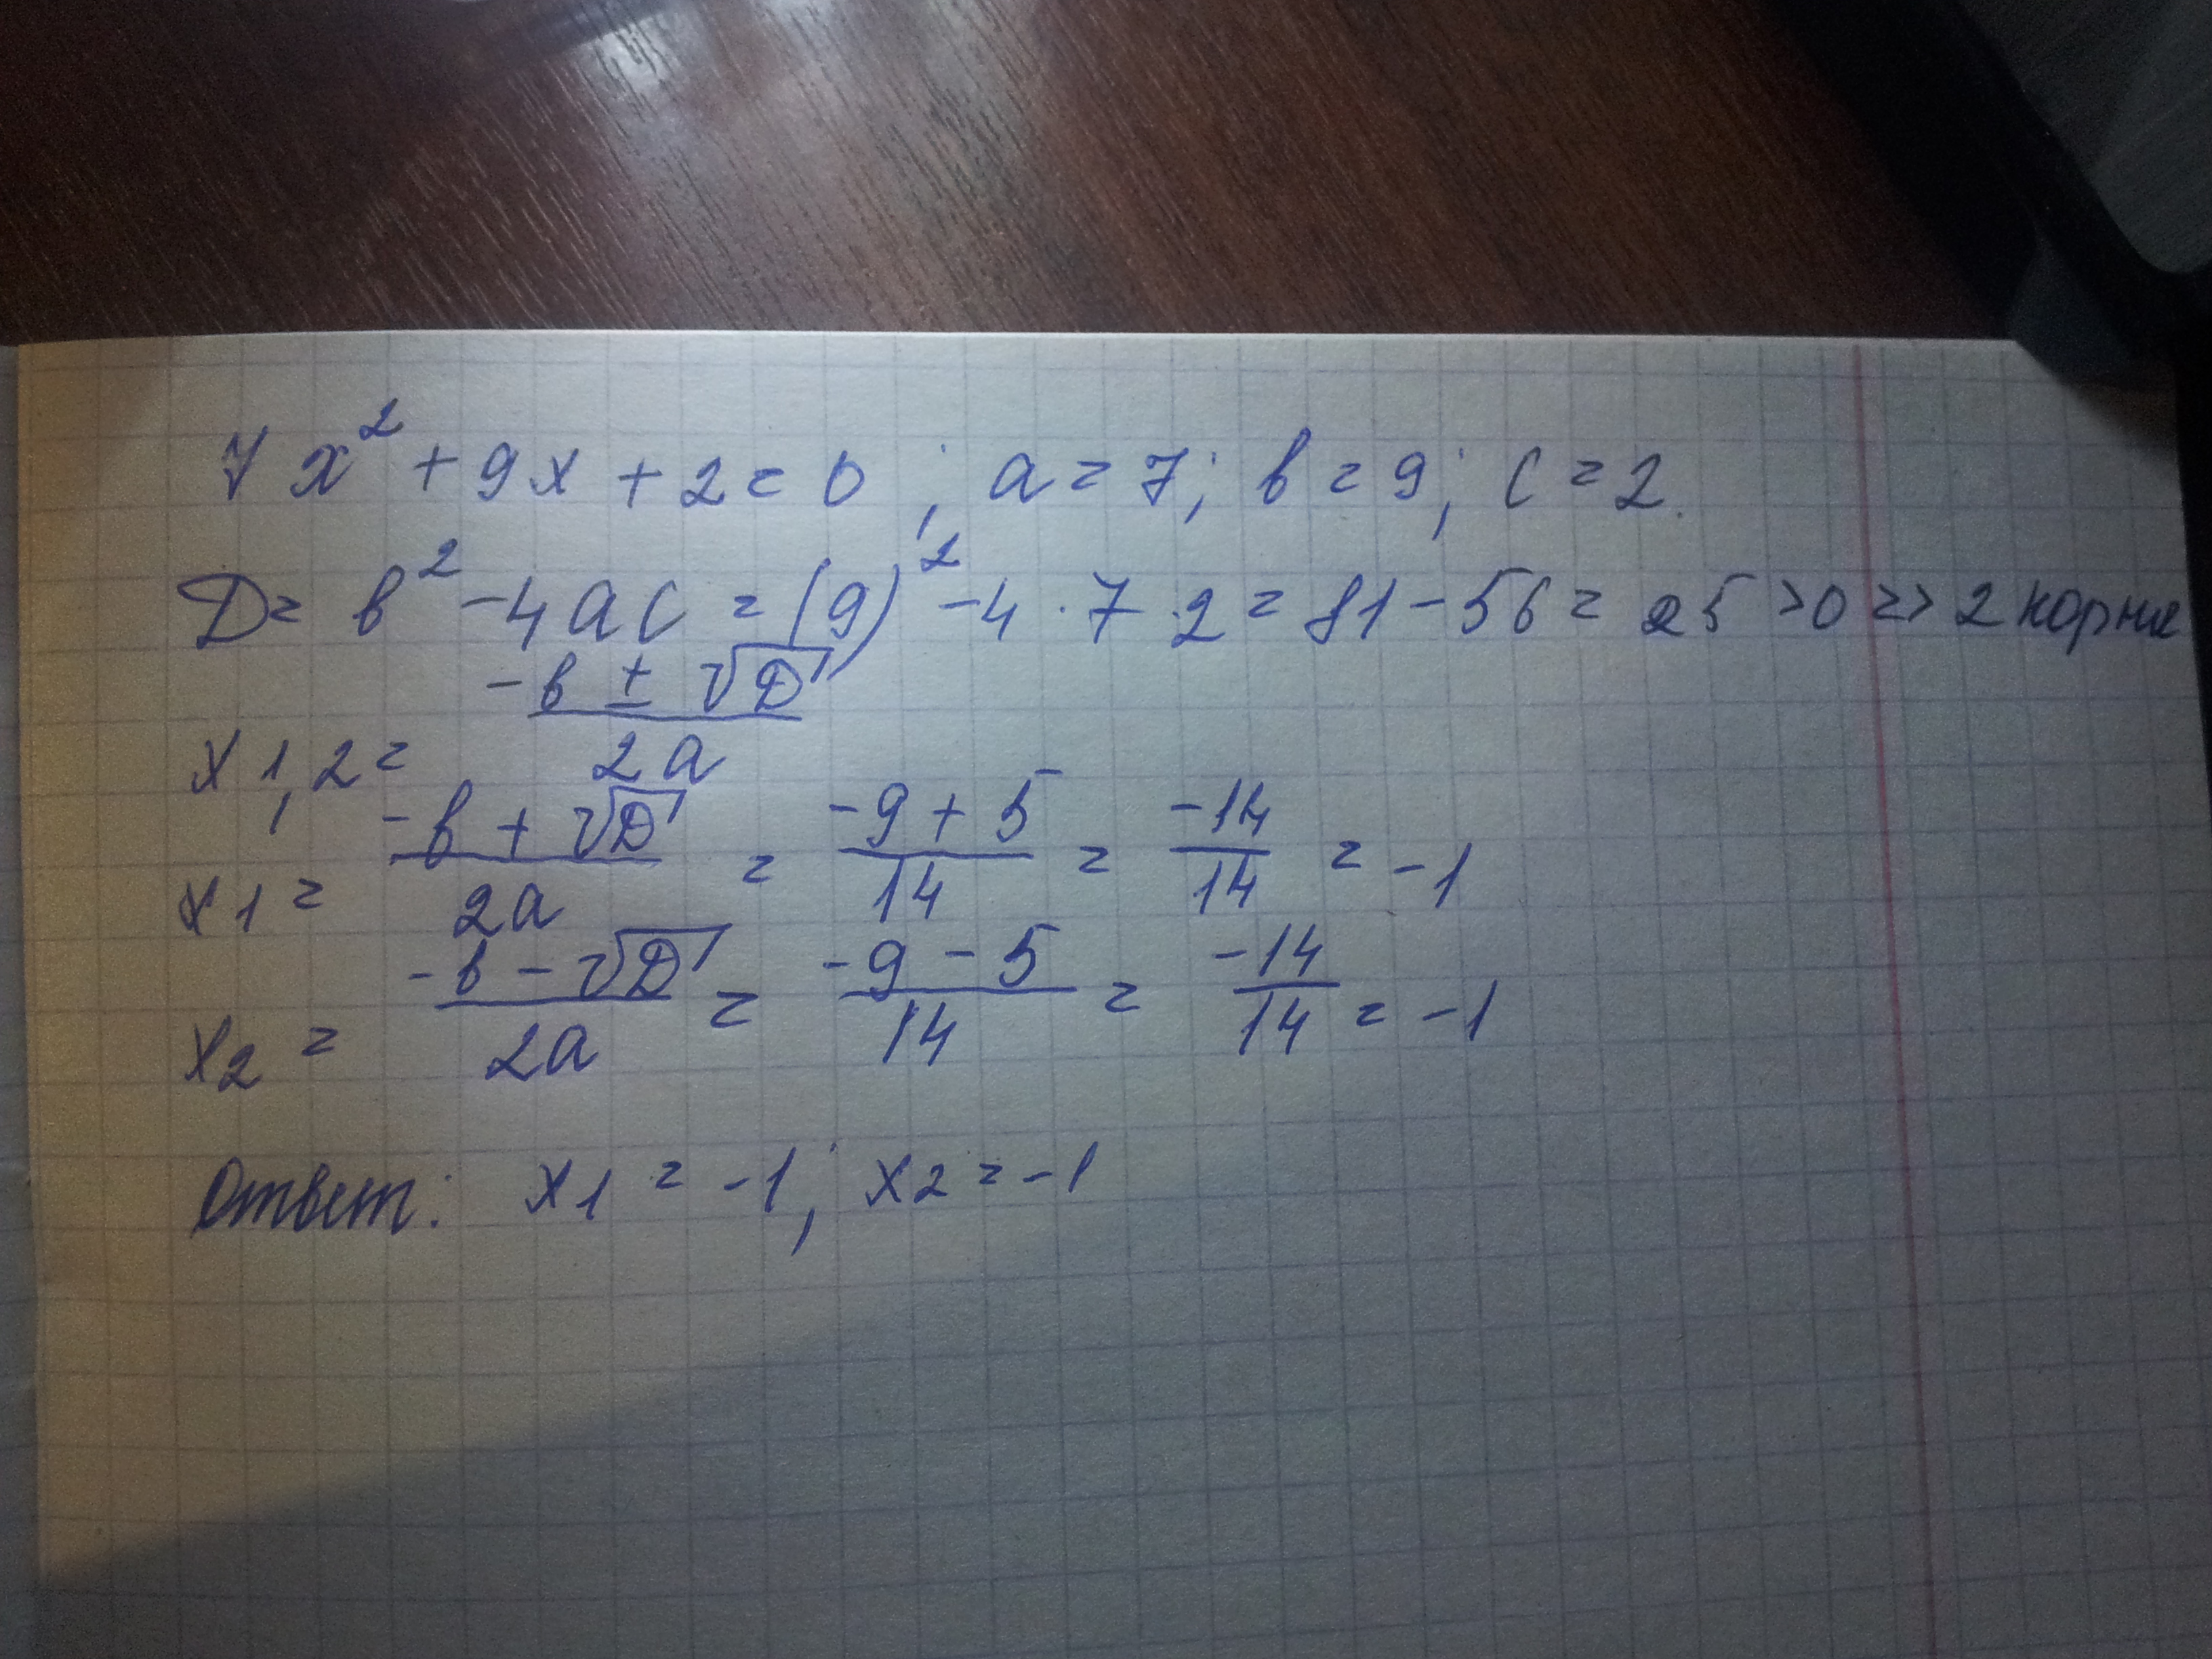 7x² + 9x + 2 = 0 ; a = 7; в = 9; c = 2.
Д = в² - 4ac = (9)² - 4 · 7 · 2 = 81 - 56 = 25 > 0 => 2 корня
x1,2 = (-в ± √Д) / 2a
x1 = (-в + √Д) / 2a = (-9 + 5) / 14 = -14 / 14 = -1
x2 = (-в - √Д) / 2a = (-9 - 5) / 14 = -14 / 14 = -1
Ответ: x1 = -1; x2 = -1